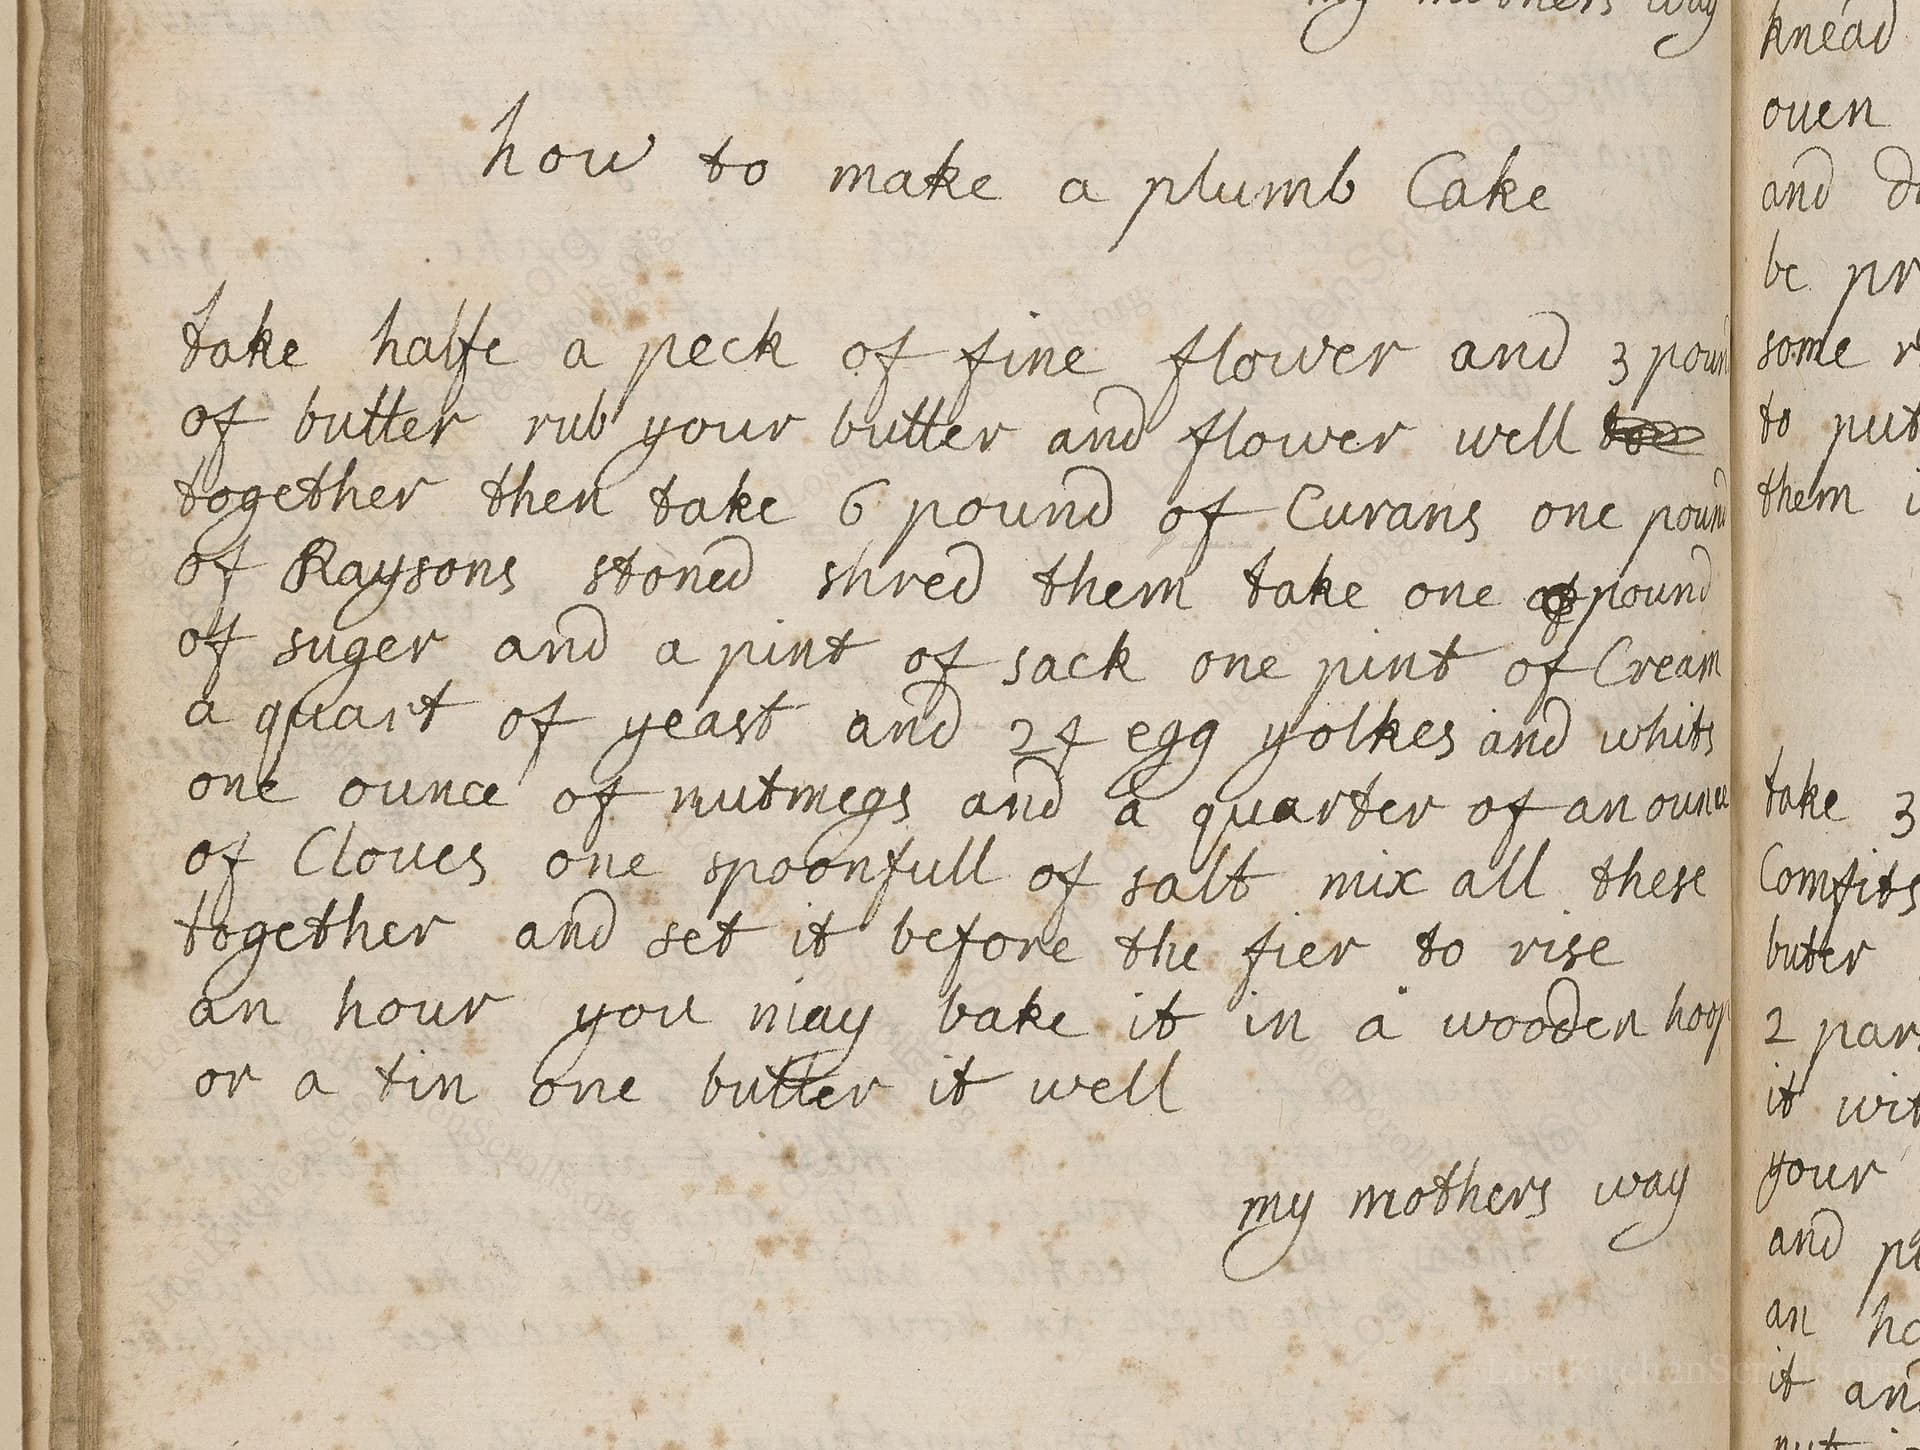 my mothers way
how to make a plumb Cake
take halfe a peck of fine flower and 3 pound
of butter rub your butter and flower well
together then take 6 pound of Curans one pound
of Raysons stoned shred them take one pound
of suger and a pint of sack one pint of Cream
a quart of yeast and 24 egg yolkes and whits
one ounce of nutmegs and a quarter of an ounce
of Cloves one spoonfull of salt mix all these
together and set it before the fier to rise
an hour you may bake it in a wooden hoop
or a tin one butter it well
my mothers way
knead
ouen
and
be
some
to put
them
take 3
Comfits
buter
2
it
your
and
an
it